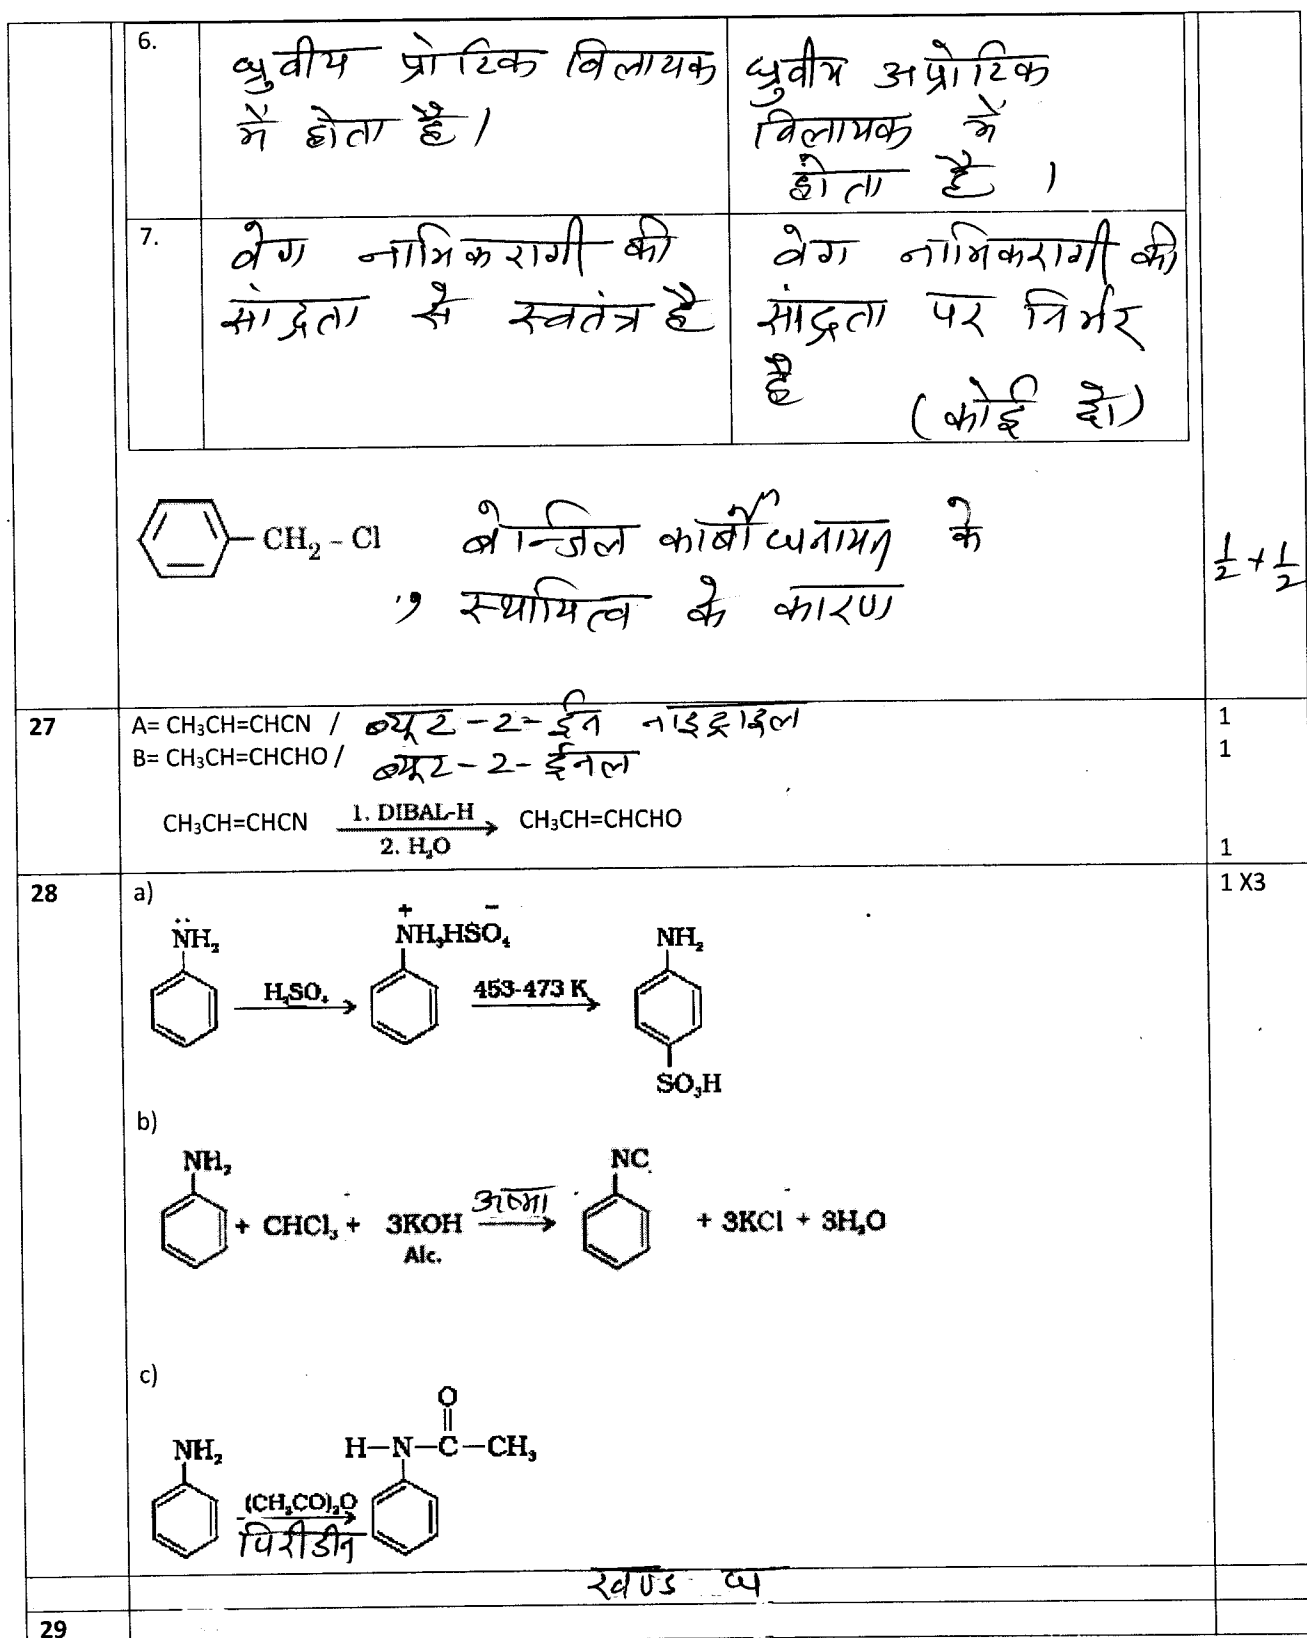 6.
ध्रुवीय प्रोटिक विलायक
में होता है।
ध्रुवीय अप्रोटिक
विलायक में
होता है ।
7.
वेग नाभिकरागी की
सांद्रता से स्वतंत्र है
वेग नाभिकरागी की
सांद्रता पर निर्भर
है
(कोई दो)
CH₂ - Cl
बेन्जिल कार्बोधनायन के
, स्थायित्व के कारण
1/2 + 1/2
27
A= CH₃CH=CHCN / ब्यूट-2-ईन नाइट्राइल
1
B= CH₃CH=CHCHO / ब्यूट-2-ईनल
1
CH₃CH=CHCN 1. DIBAL-H CH₃CH=CHCHO
2. H₂O
1
28
a)
1 X3
N̈H₂
+ −
NH₃HSO₄
NH₂
H₂SO₄
453-473 K
SO₃H
b)
NH₂
NC
+ CHCl₃ + 3KOH ऊष्मा + 3KCl + 3H₂O
Alc.
c)
O
NH₂
H–N–C–CH₃
(CH₃CO)₂O
पिरीडीन
खण्ड घ
29